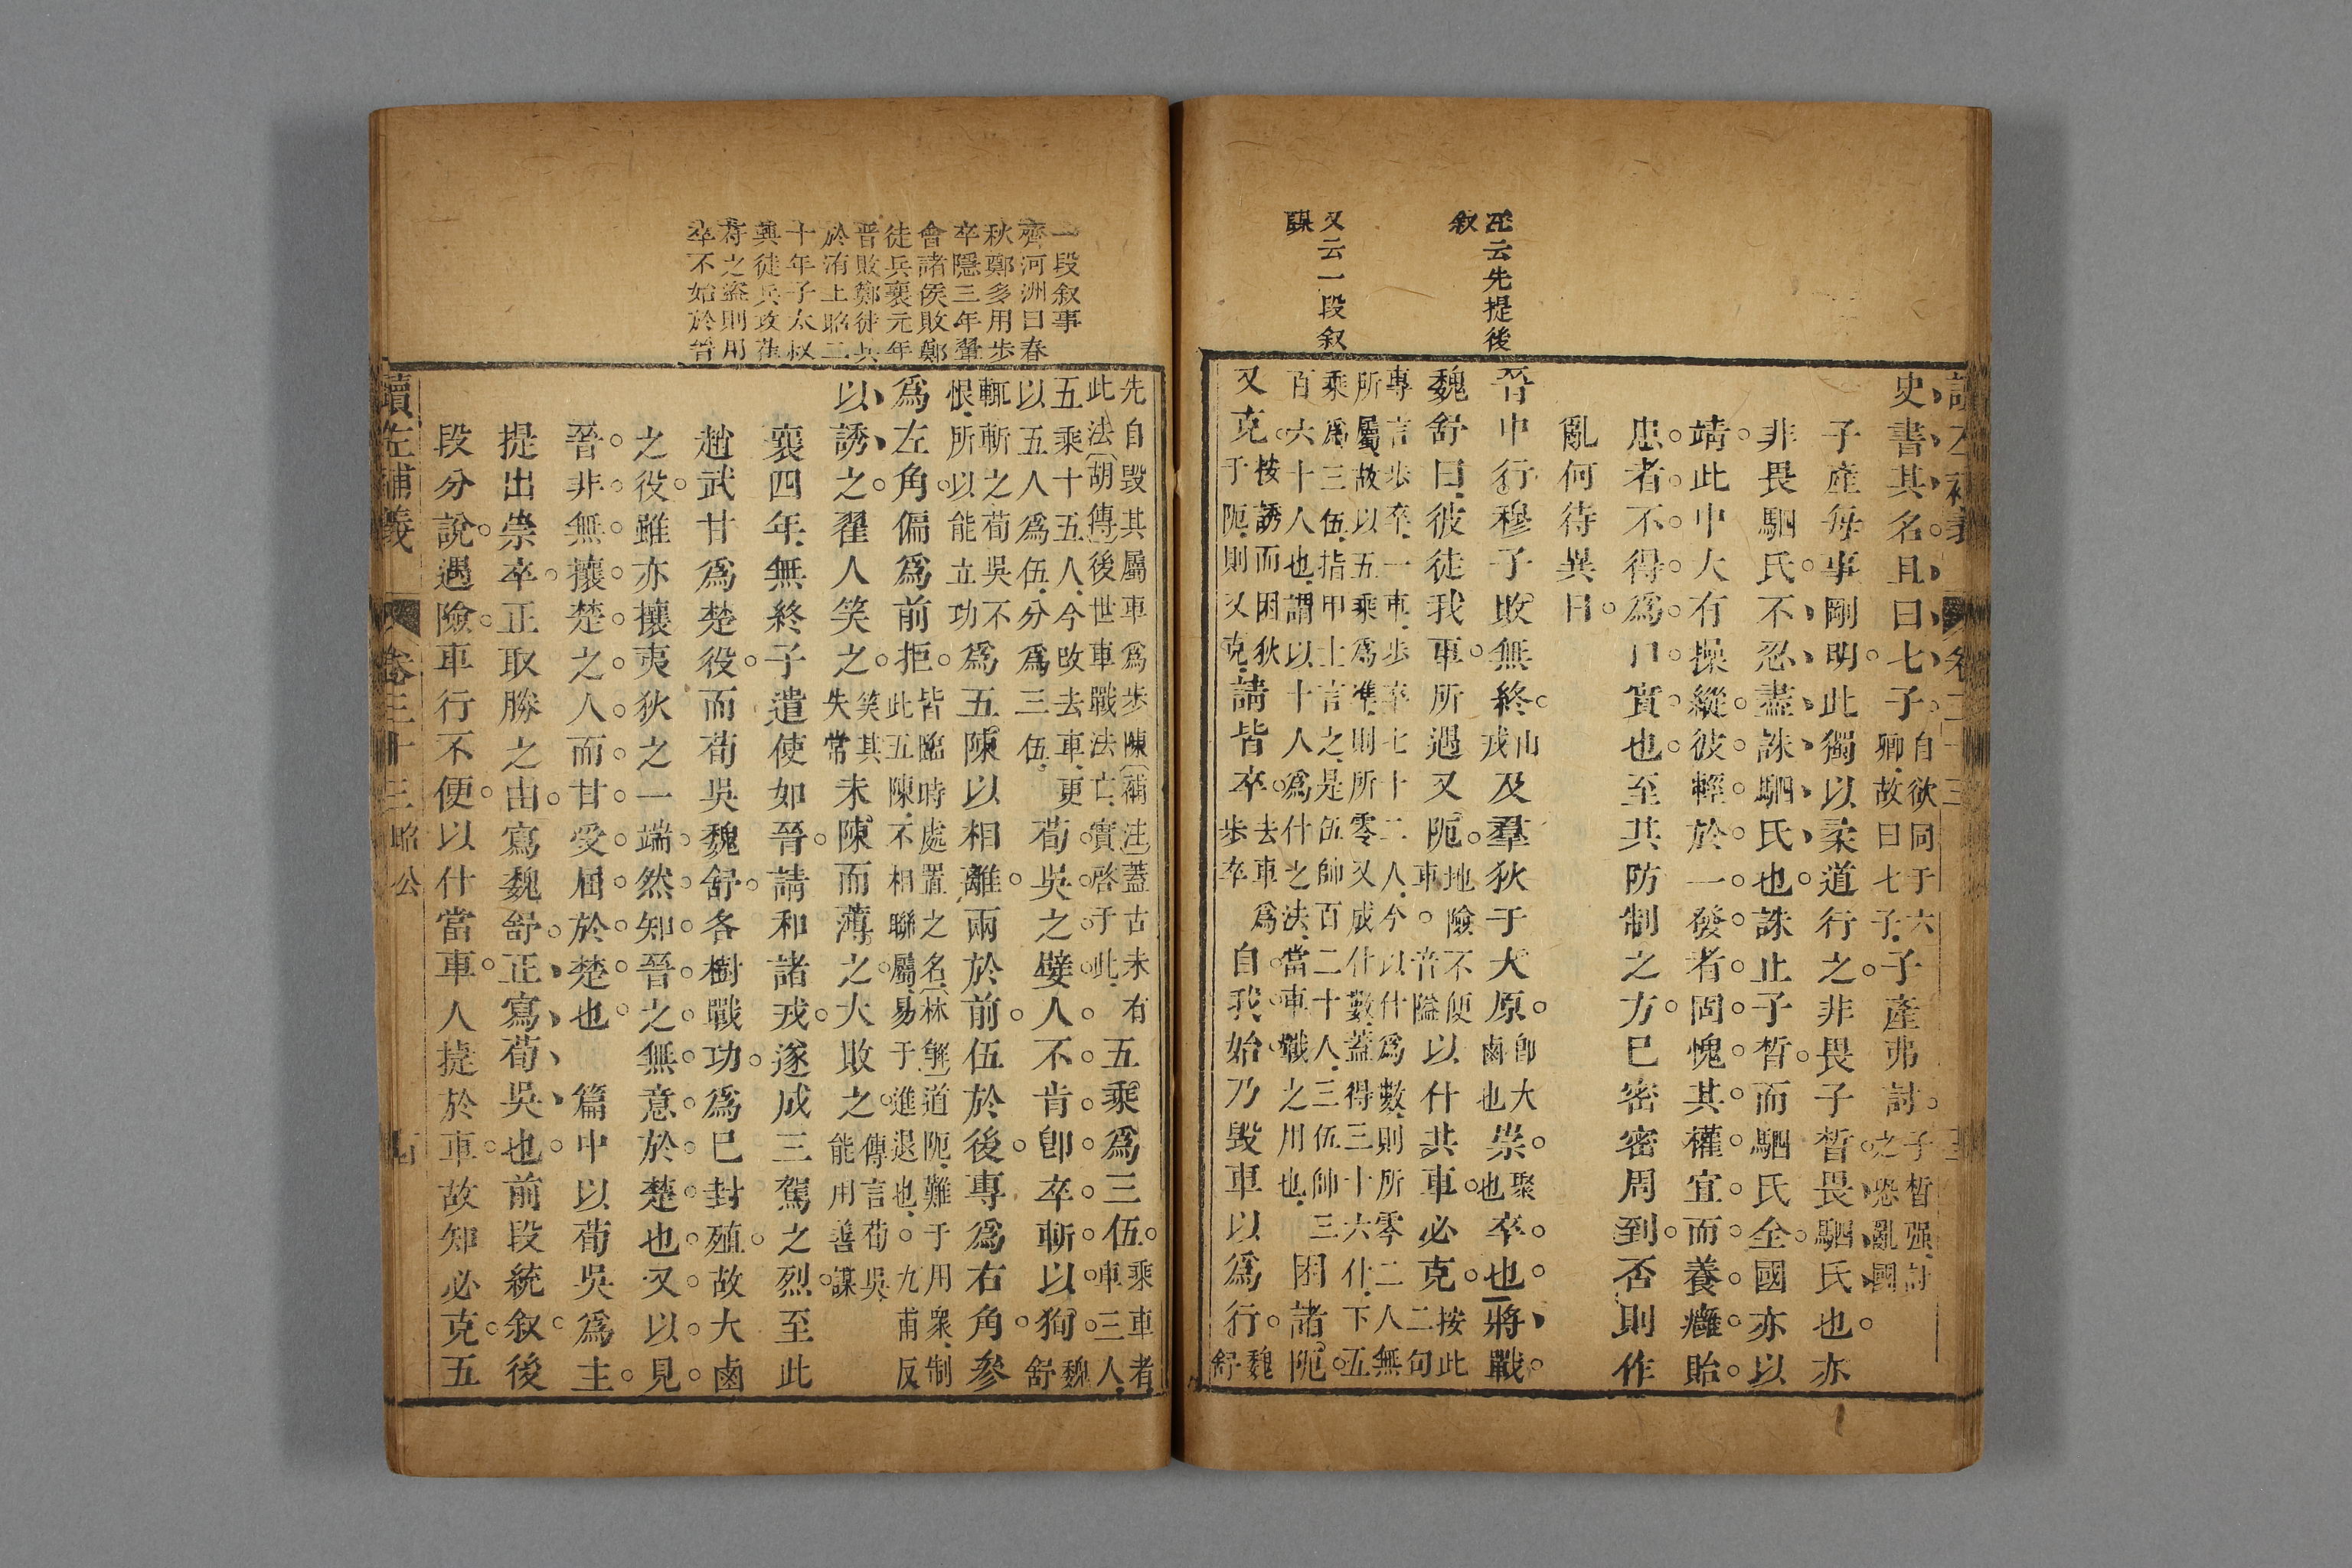 讀左補義 卷三十三
史書其名且曰七子自欲同于六卿故曰七子子產弗討子晳强討之恐亂國
子產每事剛明此獨以柔道行之非畏子晳畏駟氏也亦
非畏駟氏不忍盡誅駟氏也誅止子晳而駟氏全國亦以
靖此中大有操縱彼輕於一發者固愧其權宜而養癰貽
患者不得爲口實也至其防制之方已密密周到否則作
亂何待異日
云先提後
敘
晉中行穆子敗無終山戎及羣狄于大原卽大鹵也崇聚也卒也將戰
魏舒曰彼徒我車所遇又阨地險不便車。音隘以什共車必克按此二句
專言步卒一車步卒七十二人今以什爲數則所零二人無
所屬故以五乘爲準則所零又成什數蓋得三十六什下五
又云一段敘
謀
乘爲三伍指甲士言之是伍帥百二十人三伍帥三
百六十人也謂以十人爲什之法當車戰之用也困諸阨
又克按誘而困狄于阨則又克請皆卒去車爲步卒自我始乃毀車以爲行魏舒
先自毀其屬車爲步陳〔補注〕蓋古未有
此法〔胡傳〕後世車戰法亡實啓于此五乘爲三伍乘車者車三人
五乘十五人今改去車更
以五人爲伍分爲三伍荀吳之嬖人不肯卽卒斬以狥魏舒
輒斬之荀吳不
恨所以能立功爲五陳以相離兩於前伍於後專爲右角參
爲左角偏爲前拒皆臨時處置之名〔林解〕道阨難于用衆制
此五陳不相聯屬易于進退也。九甫反
以誘之翟人笑之笑其失常未陳而薄之大敗之傳言荀吳能用善謀
一段敘事
齊河洲曰春
秋鄭多用步
卒隱三年鞏
會諸侯敗鄭
徒兵襄元年
晉敗鄭徒兵
於洧上昭二
十年子太叔
興徒兵攻萑
苻之盜則用
卒不始於晉
襄四年無終子遣使如晉請和諸戎遂成三駕之烈至此
趙武甘爲楚役而荀吳魏舒各樹戰功爲已封殖故大鹵
之役雖亦攘夷狄之一端然知晉之無意於楚也又以見
晉非無攘楚之人而甘受屈於楚也 篇中以荀吳爲主
提出崇卒正取勝之由寫魏舒正寫荀吳也前段統敘後
段分說遇險車行不便以什當車人捷於車故知必克五
讀左補義 卷三十三 昭公